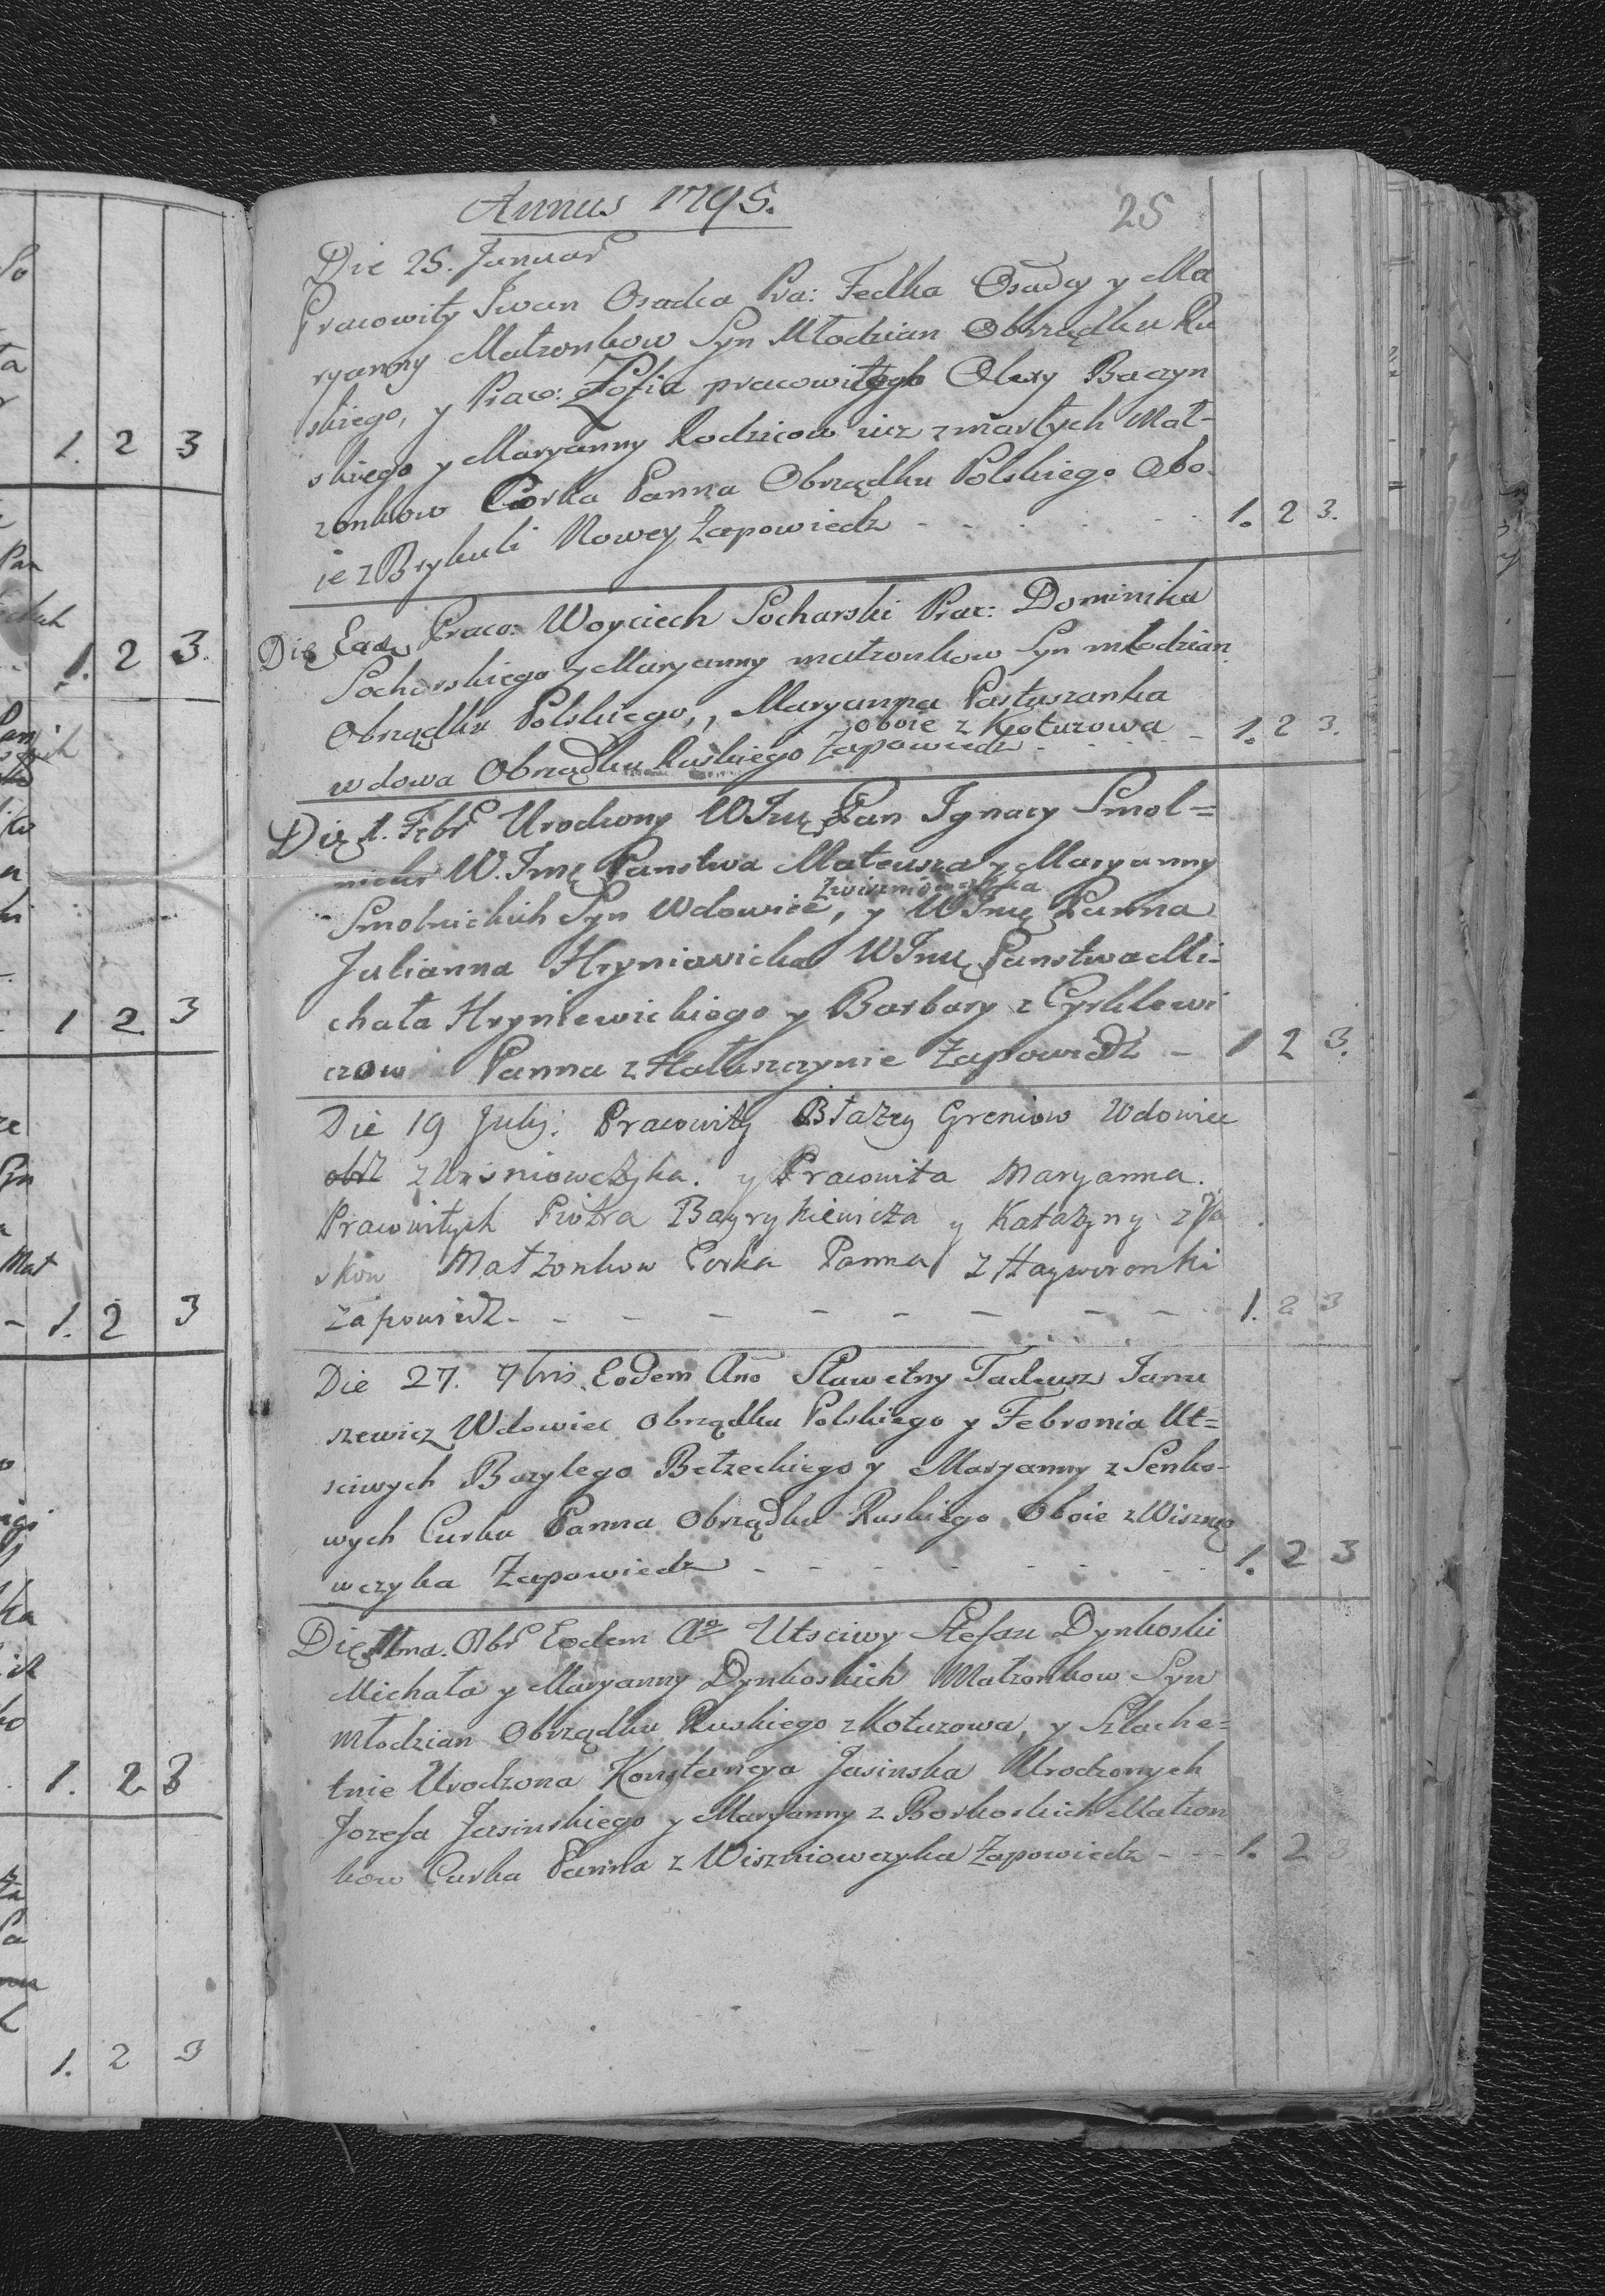 Annus 1795.
25
Die 25. Januar
Pracowity Iwan Osadca Pra: Fedka Osadcy y Ma
ryanny Małzonkow Syn Młodzian Obrządku Ru
skiego, y Praco: Zofia pracowitego Olexy Baczyn
skiego y Maryanny Rodzicow iuz zmarłych Mał-
zonkow Corka Panna Obrządku Polskiego Obo
ie z Brykuli Nowey Zapowiedz - - - - - - 1. 2 3.
Die Ead. Praco: Woyciech Socharski Prac: Dominika
Socharskiego y Maryanny małzonkow Syn młodzian
Obrządku Polskiego, , Maryanna Pastuszanka
oboie z Koturowa
wdowa Obrządku Ruskiego Zapowiedz - - - - - - 1. 2 3.
Die 1. Febr Urodzony WJmę Pan Ignacy Smol=
nicki W. Jmę Panstwa Mateusza y Maryanny
z wiszniowczyka
Smolnickich Syn Wdowiec, y WJmę Panna
Julianna Hryniewicka WJmę Panstwa Mi-
chała Hryniewickiego y Barbary z Cyrklewi
czow Panna z Hałuszczynie Zapowiedz - 1 2 3.
Die 19 July. Pracowity Błazey Greniow Wdowiec
obrz z Wisniowczyka. y Pracowita Maryanna.
Pracowitych Piotra Bayrykiewicza y Katazyny z Ja
skow Matzonkow Corka Panna z Hayworonki
zapowiedz - - - - - - - - 1. 2 3
Die 27. 7bris. Eodem Ano Sławetny Tadeusz Janu
szewicz Wdowiec Obrządku Polskiego y Febronia Ut=
sciwych Bazylego Bełzeckiego y Maryanny z Senko-
wych Curka Panna Obrządku Ruskiego Oboie z Wisznio
wczyka Zapowiedz - - - - - - - 1. 2 3
Die 11ma. Obr Eodem Ao Utsciwy Stefan Dynkoski
Michała y Maryanny Dynkoskich Matzonkow Syn
Młodzian Obrządku Ruskiego z Koturowa, y Szlache=
tnie Urodzona Konstancya Jasinska Urodzonych
Jozefa Jasinskiego y Maryanny z Borkoskich Matzon
kow Curka Panna z Wiszniowczyka Zapowiedz - - - 1. 2 3
1. 2 3
1. 2 3.
1 2 3
1. 2 3
1. 2 3
1. 2 3